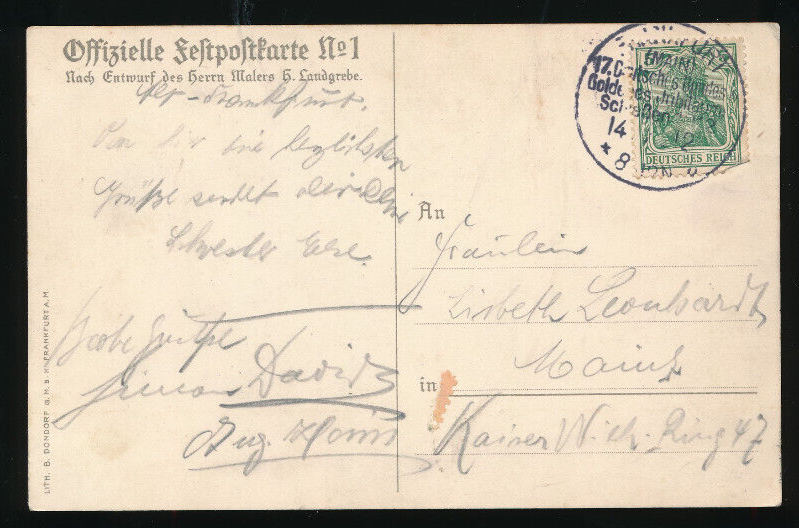 Offizielle Festpostkarte No 1
Nach Entwurf des Herrn Malers H. Landgrebe.
Alt-Frankfurt.
Von hier die herzlichsten
Grüße sendet Dir Deine
Schwester Else.
Beste Grüße
Simon Davids
Aug.
LITH. B. DONDORF G.M.B.H. FRANKFURT A.M
FRANKFURT
(MAIN)
17. Deutsches Bundes
Goldenes Jubiläum
Schießen
14
12
* 8
DEUTSCHES REICH
An
Fräulein
Lisbeth Leonhardt
in Mainz
Kaiser Wilh. Ring 47